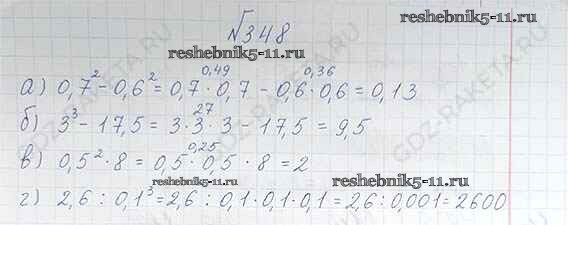 №348
reshebnik5-11.ru
reshebnik5-11.ru
0,49 0,36
а) 0,7² - 0,6² = 0,7 · 0,7 - 0,6 · 0,6 = 0,13
27
б) 3³ - 17,5 = 3 · 3 · 3 - 17,5 = 9,5
0,25
в) 0,5² · 8 = 0,5 · 0,5 · 8 = 2
reshebnik5-11.ru
reshebnik5-11.ru
г) 2,6 : 0,1³ = 2,6 : 0,1 · 0,1 · 0,1 = 2,6 : 0,001 = 2600
GDZ-RAKETA.RU
GDZ-RAKETA.RU